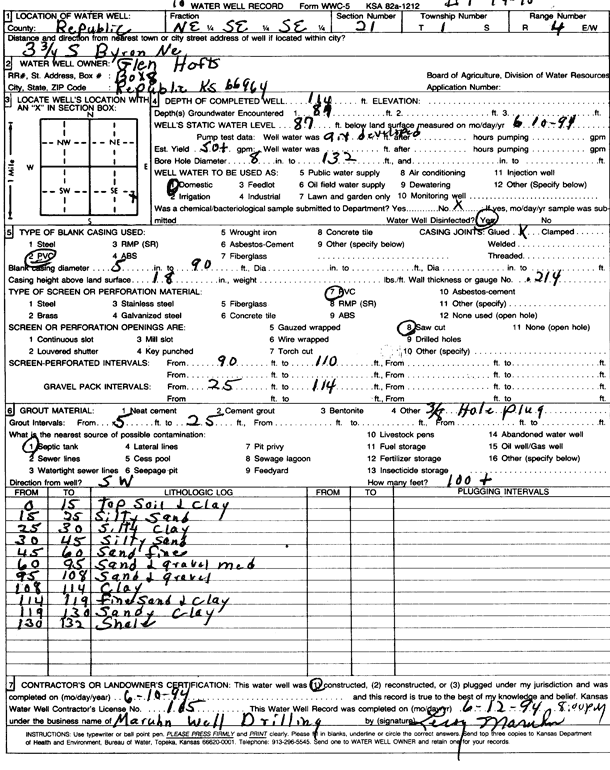 WATER WELL RECORD Form WWC-5 KSA 82a-1212
1 LOCATION OF WATER WELL: Fraction Section Number Township Number Range Number
County: Republic NE ¼ SE ¼ SE ¼ 21 T 1 S R 4 E/W
Distance and direction from nearest town or city street address of well if located within city?
3 3/4 S Byron Ne
2 WATER WELL OWNER: Glen Hofts
RR#, St. Address, Box # : Box 8 Board of Agriculture, Division of Water Resources
City, State, ZIP Code : Republic Ks 66964 Application Number:
3 LOCATE WELL'S LOCATION WITH AN "X" IN SECTION BOX:
N
NW NE
W E
SW SE
X
S
1 Mile
4 DEPTH OF COMPLETED WELL 114 ft. ELEVATION:
Depth(s) Groundwater Encountered 1. 87 ft. 2. ft. 3. ft.
WELL'S STATIC WATER LEVEL 87 ft. below land surface measured on mo/day/yr 6-10-94
Pump test data: Well water was air developed ft. after hours pumping gpm
Est. Yield 50+ gpm: Well water was ft. after hours pumping gpm
Bore Hole Diameter 8 in. to 132 ft., and in. to ft.
WELL WATER TO BE USED AS: 5 Public water supply 8 Air conditioning 11 Injection well
1 Domestic 3 Feedlot 6 Oil field water supply 9 Dewatering 12 Other (Specify below)
2 Irrigation 4 Industrial 7 Lawn and garden only 10 Monitoring well
Was a chemical/bacteriological sample submitted to Department? Yes No X If yes, mo/day/yr sample was submitted
Water Well Disinfected? Yes No
5 TYPE OF BLANK CASING USED: 5 Wrought iron 8 Concrete tile CASING JOINTS: Glued X Clamped
1 Steel 3 RMP (SR) 6 Asbestos-Cement 9 Other (specify below) Welded
2 PVC 4 ABS 7 Fiberglass Threaded
Blank casing diameter 5 in. to 90 ft., Dia in. to ft., Dia in. to ft.
Casing height above land surface 18 in., weight lbs./ft. Wall thickness or gauge No. .214
TYPE OF SCREEN OR PERFORATION MATERIAL: 7 PVC 10 Asbestos-cement
1 Steel 3 Stainless steel 5 Fiberglass 8 RMP (SR) 11 Other (specify)
2 Brass 4 Galvanized steel 6 Concrete tile 9 ABS 12 None used (open hole)
SCREEN OR PERFORATION OPENINGS ARE: 5 Gauzed wrapped 8 Saw cut 11 None (open hole)
1 Continuous slot 3 Mill slot 6 Wire wrapped 9 Drilled holes
2 Louvered shutter 4 Key punched 7 Torch cut 10 Other (specify)
SCREEN-PERFORATED INTERVALS: From 90 ft. to 110 ft., From ft. to ft.
From ft. to ft., From ft. to ft.
GRAVEL PACK INTERVALS: From 25 ft. to 114 ft., From ft. to ft.
From ft. to ft., From ft. to ft.
6 GROUT MATERIAL: 1 Neat cement 2 Cement grout 3 Bentonite 4 Other 3/8 Hole Plug
Grout Intervals: From 5 ft. to 25 ft., From ft. to ft., From ft. to ft.
What is the nearest source of possible contamination: 10 Livestock pens 14 Abandoned water well
1 Septic tank 4 Lateral lines 7 Pit privy 11 Fuel storage 15 Oil well/Gas well
2 Sewer lines 5 Cess pool 8 Sewage lagoon 12 Fertilizer storage 16 Other (specify below)
3 Watertight sewer lines 6 Seepage pit 9 Feedyard 13 Insecticide storage
Direction from well? SW How many feet? 100+
FROM TO LITHOLOGIC LOG FROM TO PLUGGING INTERVALS
0 15 Top Soil & Clay
15 25 Silty Sand
25 30 Silty Clay
30 45 Silty Sand
45 60 Sand fine
60 95 Sand & gravel med
95 108 Sand & gravel
108 114 Clay
114 119 fine Sand & Clay
119 130 Sandy Clay
130 132 Shale
7 CONTRACTOR'S OR LANDOWNER'S CERTIFICATION: This water well was (1) constructed, (2) reconstructed, or (3) plugged under my jurisdiction and was
completed on (mo/day/year) 6-10-94 and this record is true to the best of my knowledge and belief. Kansas
Water Well Contractor's License No. 185 This Water Well Record was completed on (mo/day/yr) 6-12-94 8:00PM
under the business name of Maruhn Well Drilling by (signature) Leroy Maruhn
INSTRUCTIONS: Use typewriter or ball point pen. PLEASE PRESS FIRMLY and PRINT clearly. Please fill in blanks, underline or circle the correct answers. Send top three copies to Kansas Department
of Health and Environment, Bureau of Water, Topeka, Kansas 66620-0001. Telephone: 913-296-5545. Send one to WATER WELL OWNER and retain one for your records.